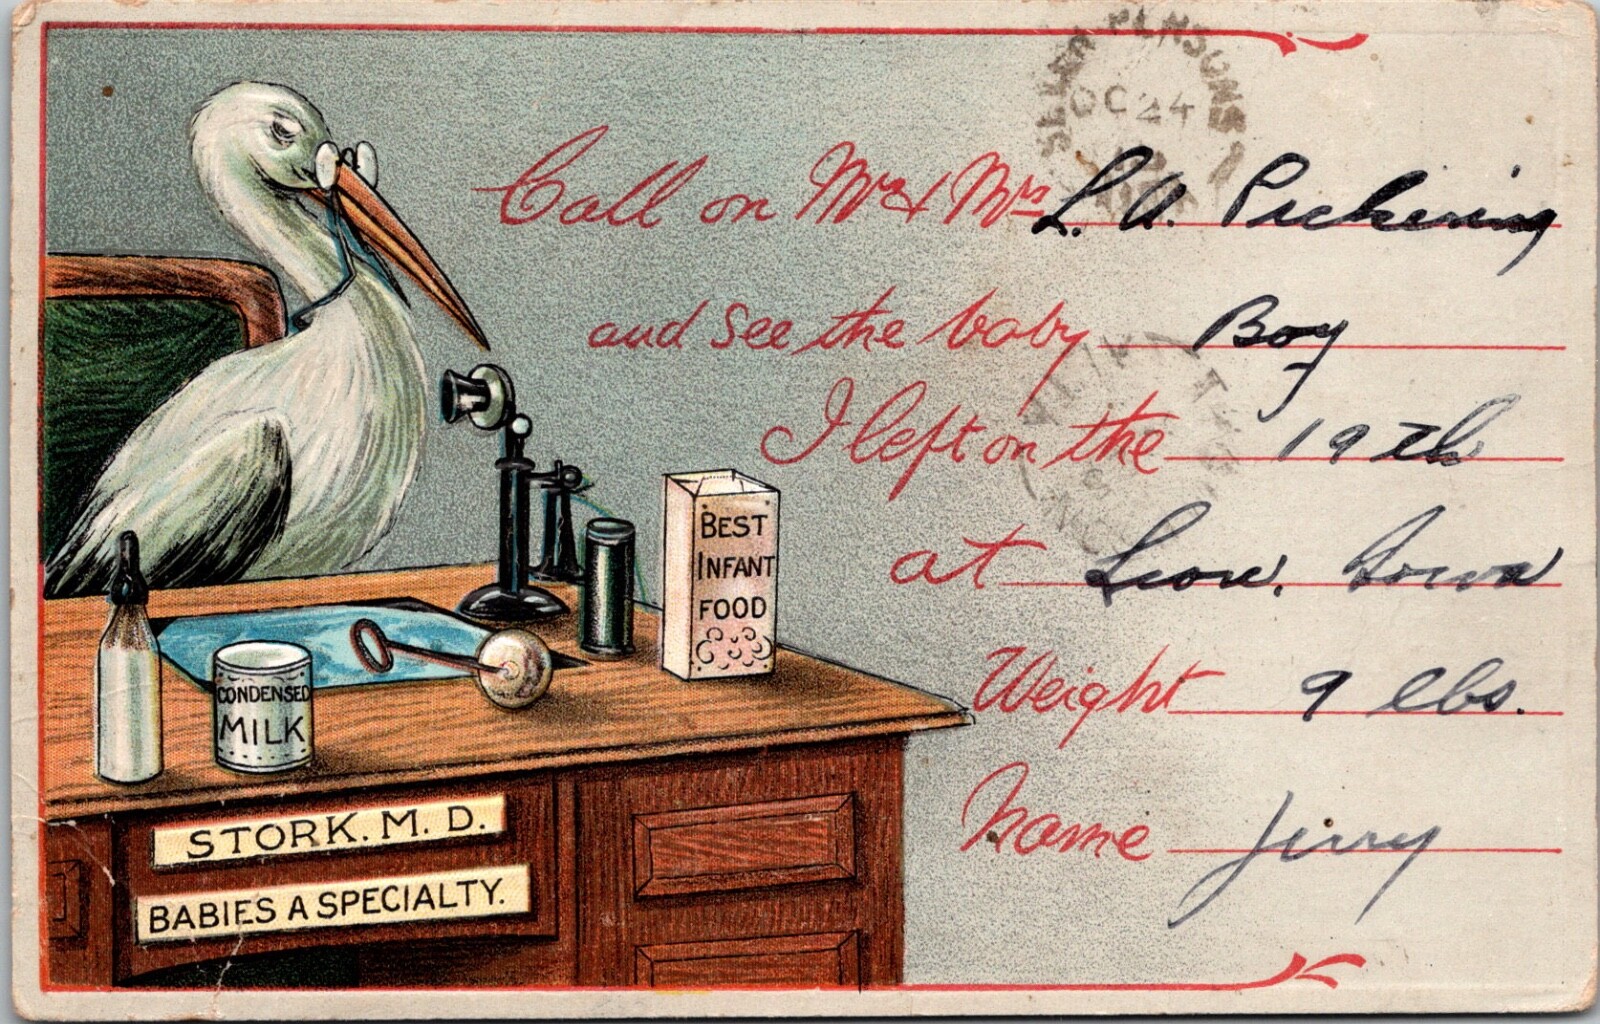 OC 24
Call on Mr & Mrs L. A. Pickering
and see the baby Boy
I left on the 19th
at Iowa
Weight 9 lbs.
Name Jerry
BEST
INFANT
FOOD
CONDENSED
MILK
STORK. M. D.
BABIES A SPECIALTY.